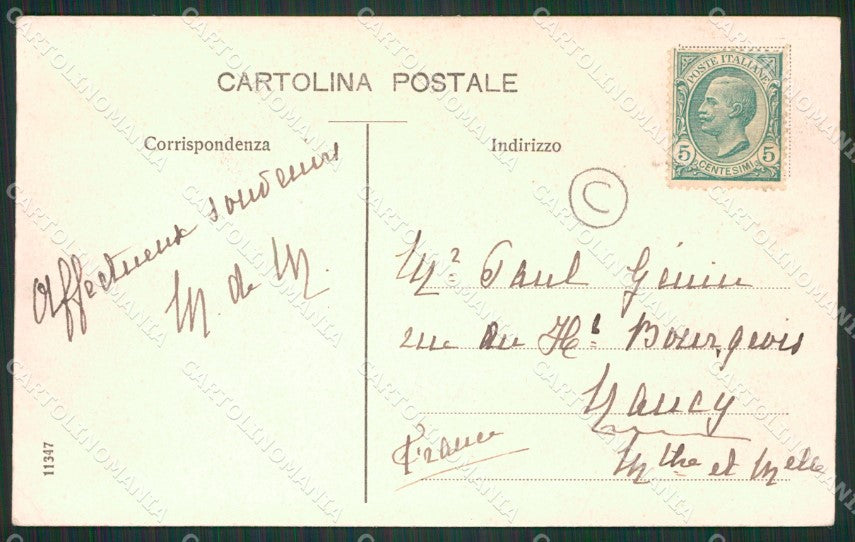 CARTOLINA POSTALE
POSTE ITALIANE
5 5
CENTESIMI
Corrispondenza
Indirizzo
C
Affectueux souvenirs
M. de M.
Mr Paul Génin
rue du Ht Bourgeois
Nancy
France
Mthe et Melle
11347
CARTOLINOMANIA